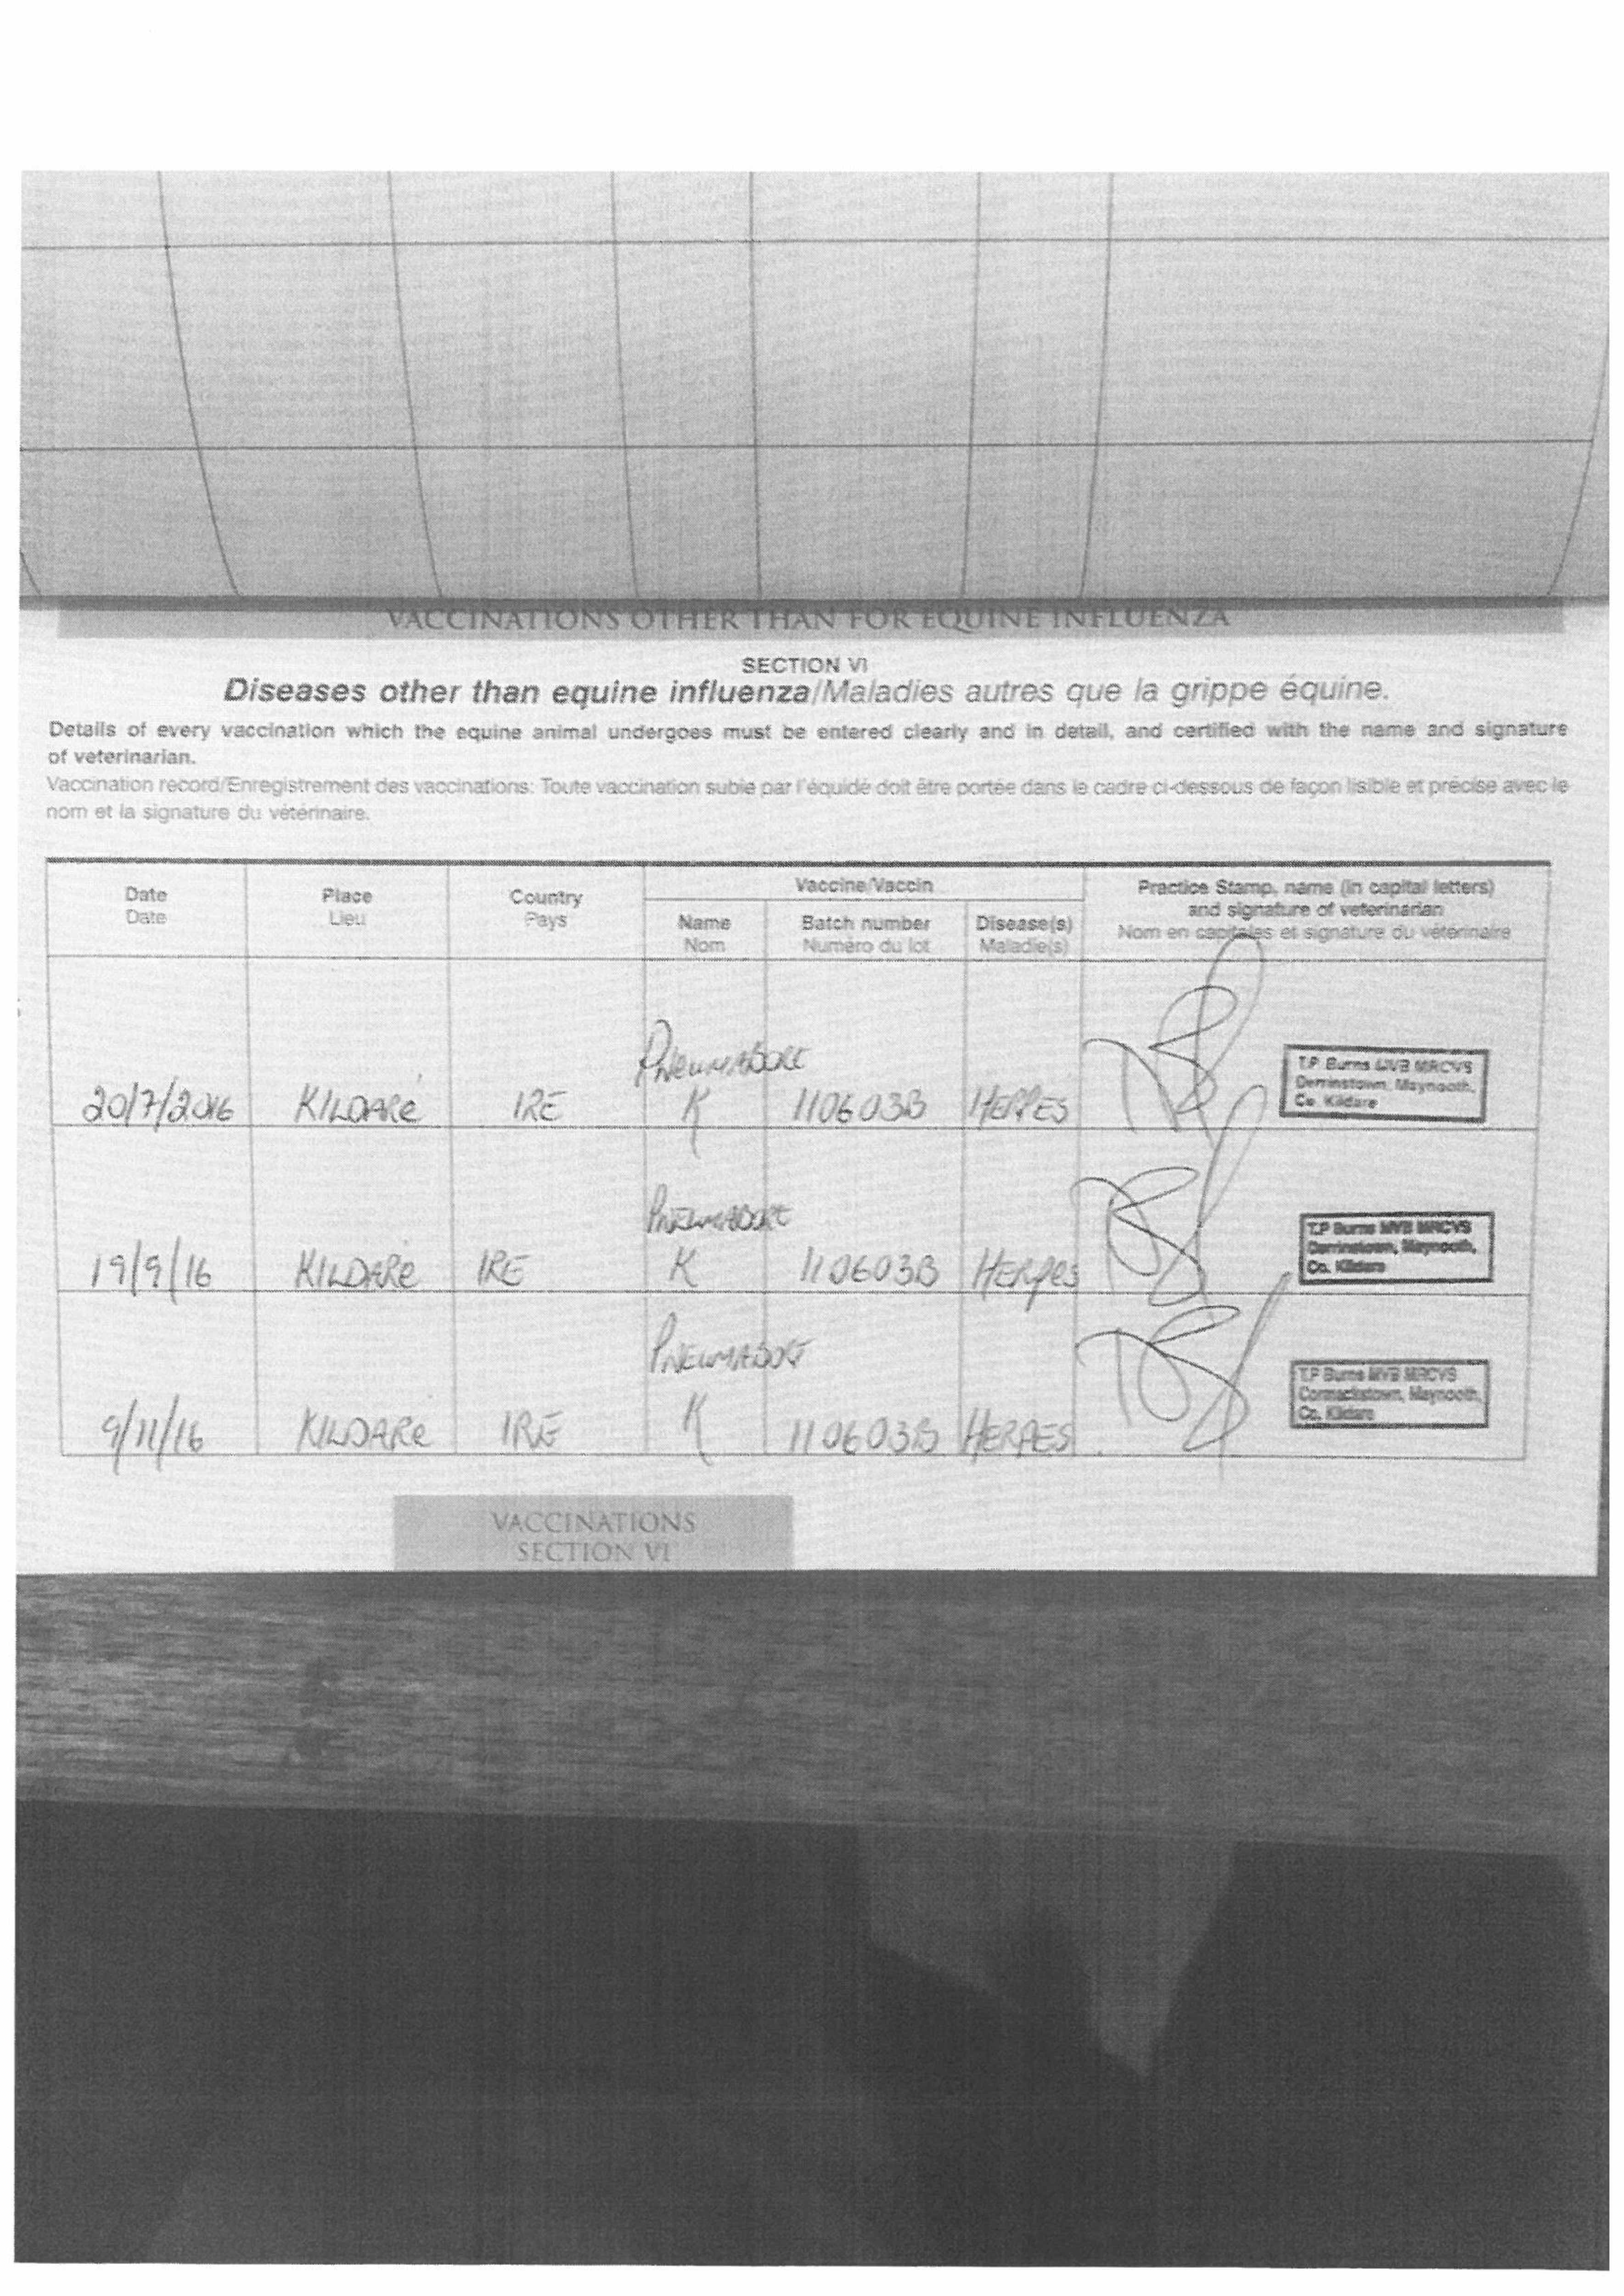 VACCINATIONS OTHER THAN FOR EQUINE INFLUENZA
SECTION VI
Diseases other than equine influenza/Maladies autres que la grippe équine.
Details of every vaccination which the equine animal undergoes must be entered clearly and in detail, and certified with the name and signature
of veterinarian.
Vaccination record/Enregistrement des vaccinations: Toute vaccination subie par l'équidé doit être portée dans le cadre ci-dessous de façon lisible et précise avec le
nom et la signature du vétérinaire.
Date Place Country Vaccine/Vaccin Practice Stamp, name (in capital letters)
Date Lieu Pays Name Batch number Disease(s) and signature of veterinarian
Nom Numéro du lot Maladie(s) Nom en capitales et signature du vétérinaire
PNEUMABORT
20/7/2016 KILDARE IRE K 110603B HERPES
T.P Burns MVB MRCVS
Derrinstown, Maynooth,
Co. Kildare
PNEUMABORT
19/9/16 KILDARE IRE K 110603B HERpes
T.P Burns MVB MRCVS
Derrinstown, Maynooth,
Co. Kildare
PNEUMABORT
9/11/16 KILDARE IRE K 110603B HERPES
T.P Burns MVB MRCVS
Cormackstown, Maynooth,
Co. Kildare
VACCINATIONS
SECTION VI